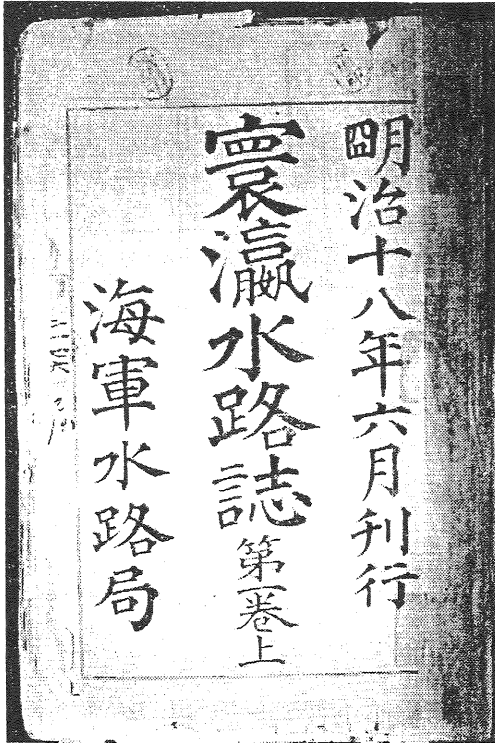 明治十八年六月刊行
寰瀛水路誌第一巻上
海軍水路局